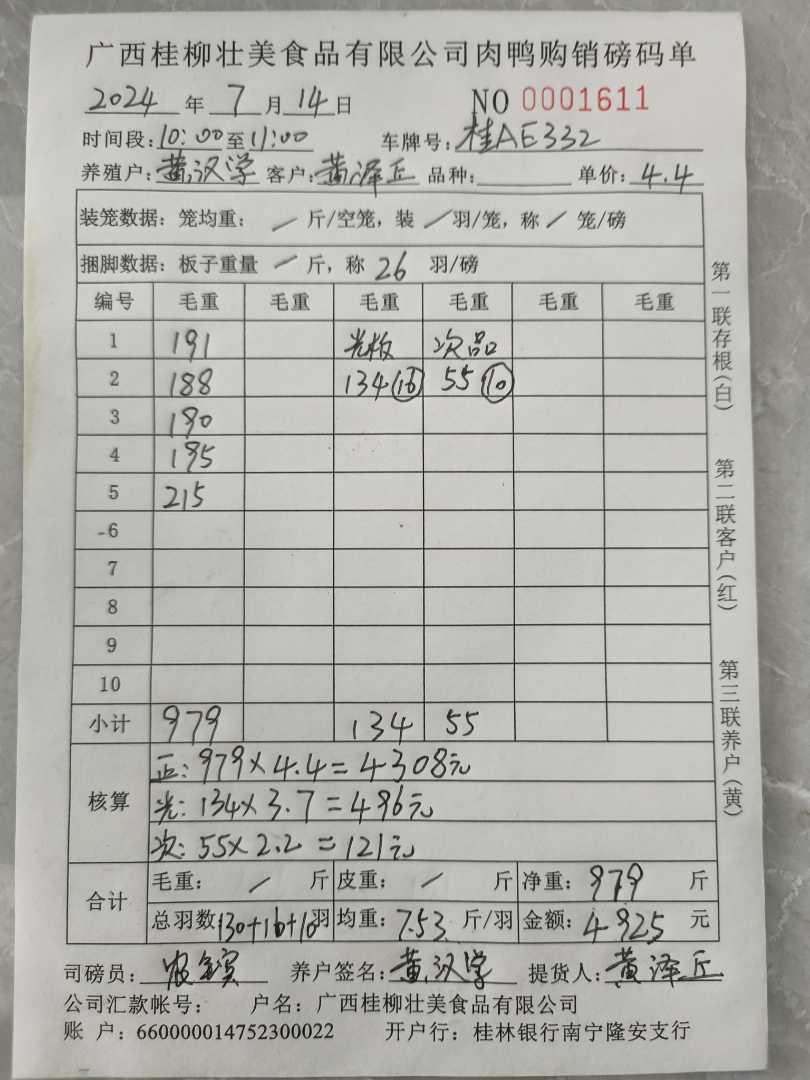 广西桂柳壮美食品有限公司肉鸭购销磅码单
2024年 7月14日 NO 0001611
时间段:10:00至11:00 车牌号:桂AE332
养殖户:黄汉学 客户:黄泽丘 品种: 单价:4.4
装笼数据:笼均重: / 斤/空笼,装 / 羽/笼,称 / 笼/磅
捆脚数据:板子重量 / 斤,称 26 羽/磅
编号 毛重 毛重 毛重 毛重 毛重 毛重
1 191 光板 次品
2 188 134(16) 55(10)
3 190
4 195
5 215
6
7
8
9
10
小计 979 134 55
核算
正:979×4.4=4308元
光:134×3.7=496元
次:55×2.2=121元
合计
毛重: / 斤 皮重: / 斤 净重:979 斤
总羽数130+16+10羽 均重:7.53 斤/羽 金额:4925 元
司磅员: 养户签名:黄汉学 提货人:黄泽丘
公司汇款帐号: 户名:广西桂柳壮美食品有限公司
账 户:660000014752300022 开户行:桂林银行南宁隆安支行
第一联存根(白)
第二联客户(红)
第三联养户(黄)